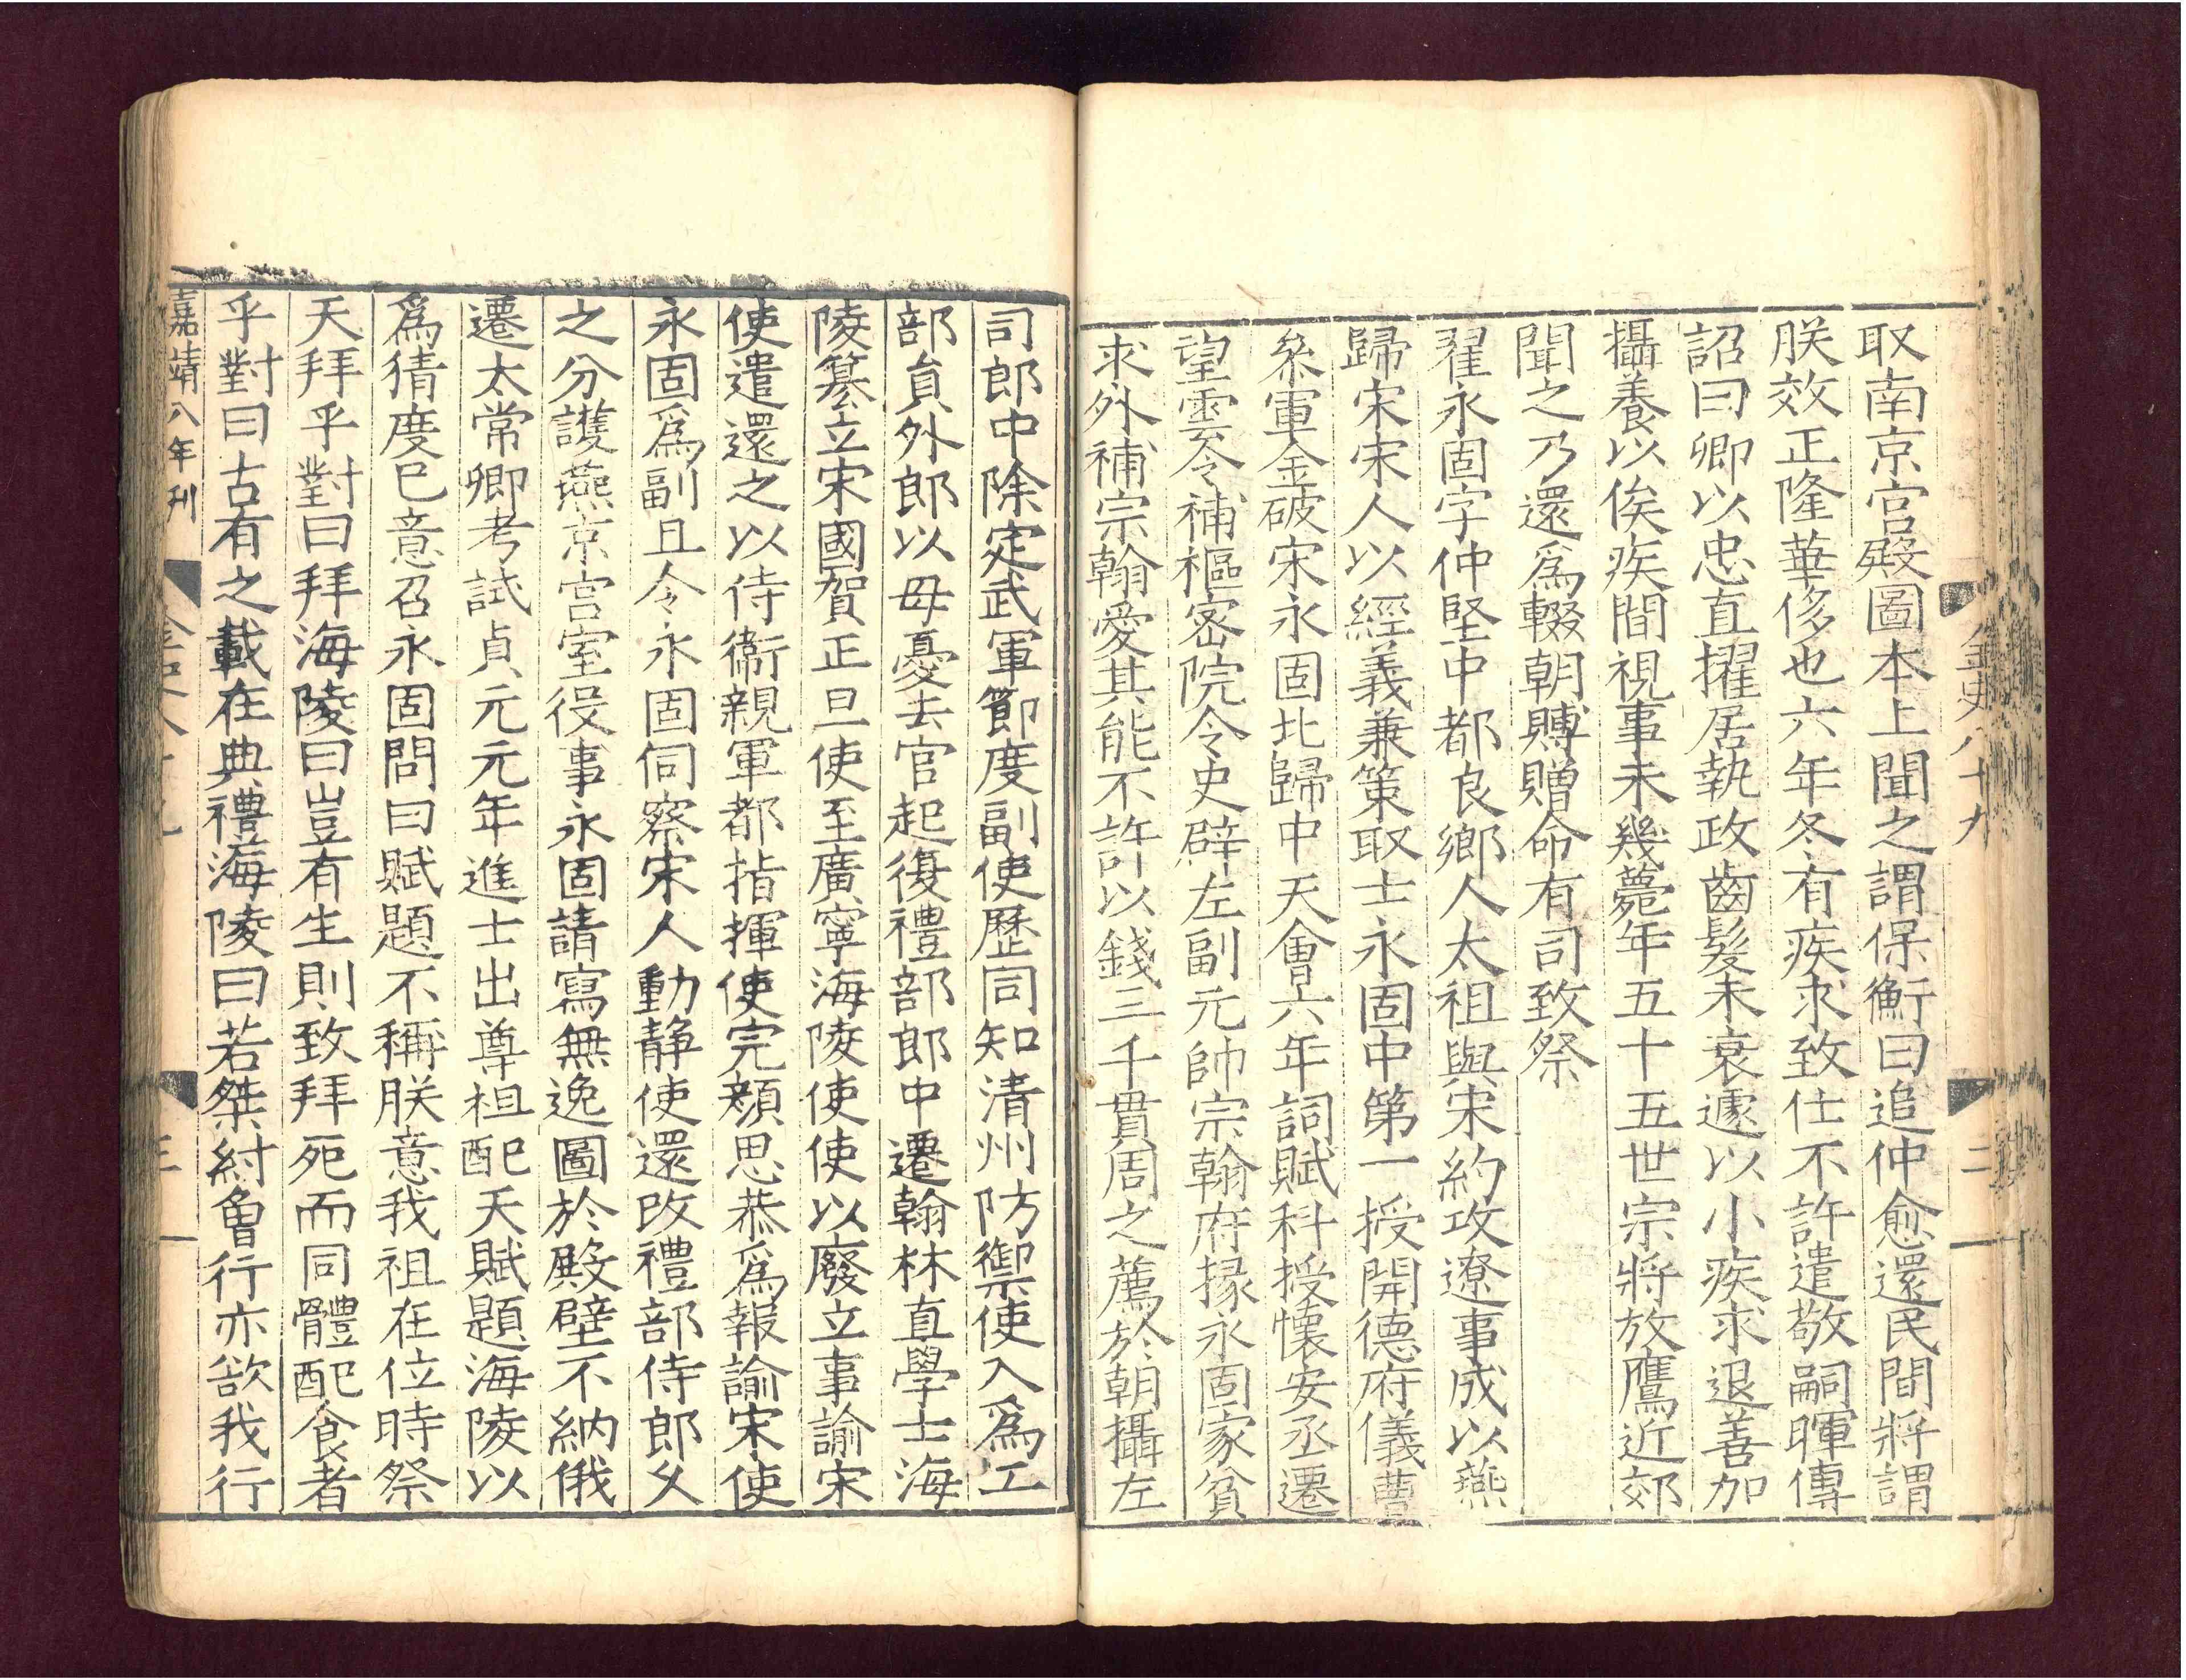 取南京宮殿圖本上聞之謂保衡曰追仲愈還民間將謂
朕效正隆華侈也六年冬有疾求致仕不許遣敬嗣暉傳
詔曰卿以忠直擢居執政齒髮未衰遽以小疾求退善加
攝養以俟疾間視事未幾薨年五十五世宗將放鷹近郊
聞之乃還爲輟朝賻贈命有司致祭
翟永固字仲堅中都良鄉人太祖與宋約攻遼事成以燕
歸宋宋人以經義兼策取士永固中第一授開德府儀曹
叅軍金破宋永固北歸中天會六年詞賦科授懷安丞遷
望雲令補樞密院令史辟左副元帥宗翰府掾永固家貧
求外補宗翰愛其能不許以錢三千貫周之薦於朝攝左
金史八十九
二
司郎中除定武軍節度副使歷同知清州防禦使入爲工
部貟外郎以母憂去官起復禮部郎中遷翰林直學士海
陵簒立宋國賀正旦使至廣寧海陵使使以廢立事諭宋
使遣還之以侍衞親軍都指揮使完顏思恭爲報諭宋使
永固爲副且令永固伺察宋人動靜使還改禮部侍郎乆
之分護燕京宮室役事永固請寫無逸圖於殿壁不納俄
遷太常卿考試貞元元年進士出尊祖配天賦題海陵以
爲猜度已意召永固問曰賦題不稱朕意我祖在位時祭
天拜乎對曰拜海陵曰豈有生則致拜死而同體配食者
乎對曰古有之載在典禮海陵曰若桀紂曾行亦欲我行
嘉靖八年刊
三